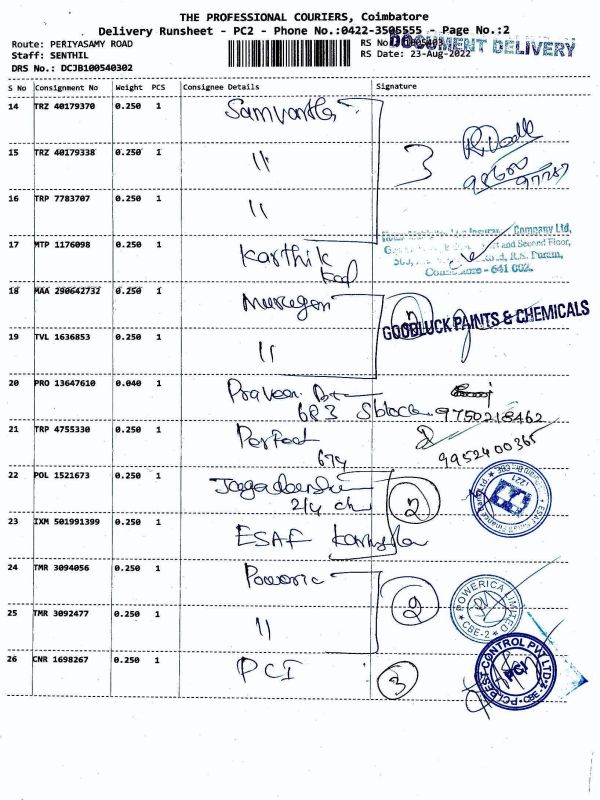 THE PROFESSIONAL COURIERS, Coimbatore
Delivery Runsheet - PC2 - Phone No.:0422-3505555 - Page No.:2
DOCUMENT DELIVERY
Route: PERIYASAMY ROAD
RS No
Staff: SENTHIL
RS Date: 23-Aug-2022
DRS No.: DCJB100540302
S No Consignment No Weight PCS Consignee Details Signature
14 TRZ 40179370 0.250 1
3
15 TRZ 40179338 0.250 1 "
16 TRP 7783707 0.250 1 "
Company Ltd,
and Second Floor,
R.S. Puram,
- 641 002.
17 MTP 1176098 0.250 1 Karthik
18 MAA 290642732 0.250 1 Murugan 2
GOODLUCK PAINTS & CHEMICALS
19 TVL 1636853 0.250 1 "
20 PRO 13647610 0.040 1 Praveen
683 Sblock 9750218462
21 TRP 4755330 0.250 1 Perfect
674 9952400365
22 POL 1521673 0.250 1 2
23 IXM 501991399 0.250 1 ESAF
24 TMR 3094056 0.250 1 Poweric 2
POWERICA LIMITED
CBE-2
25 TMR 3092477 0.250 1 "
26 CNR 1698267 0.250 1 PCI 3
PEST CONTROL PVT LTD
PCI
CBE